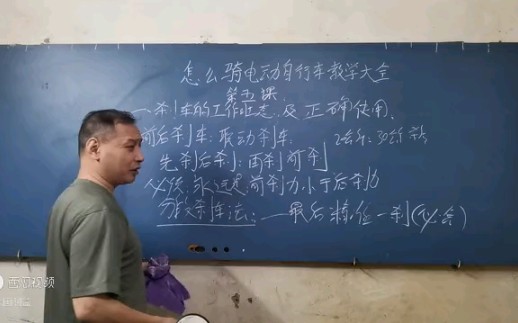 怎么骑电动自行车教学大全
第五课
一 刹车的工作状态及正确使用、
前后刹车: 联动刹车:
先刹后刹: 由刹前刹
永远是前刹力小于后刹力
刹车法: 最后 任一刹
西瓜视频